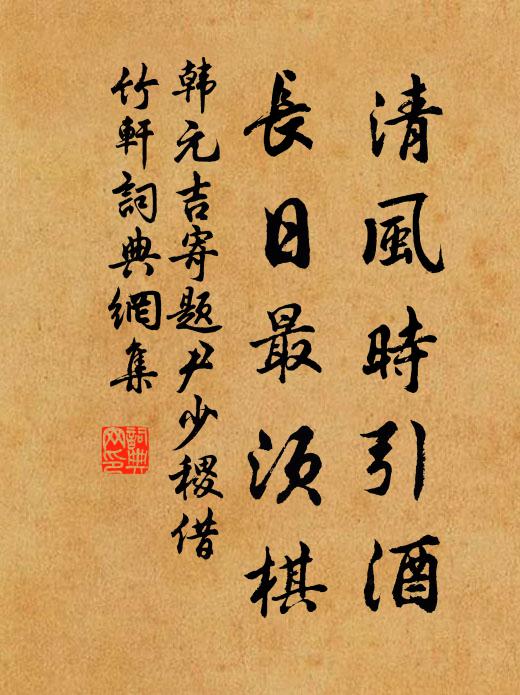 清風時引酒
長日最須棋
韩元吉寄题尹少稷借
竹軒詞典網集
詞典网印